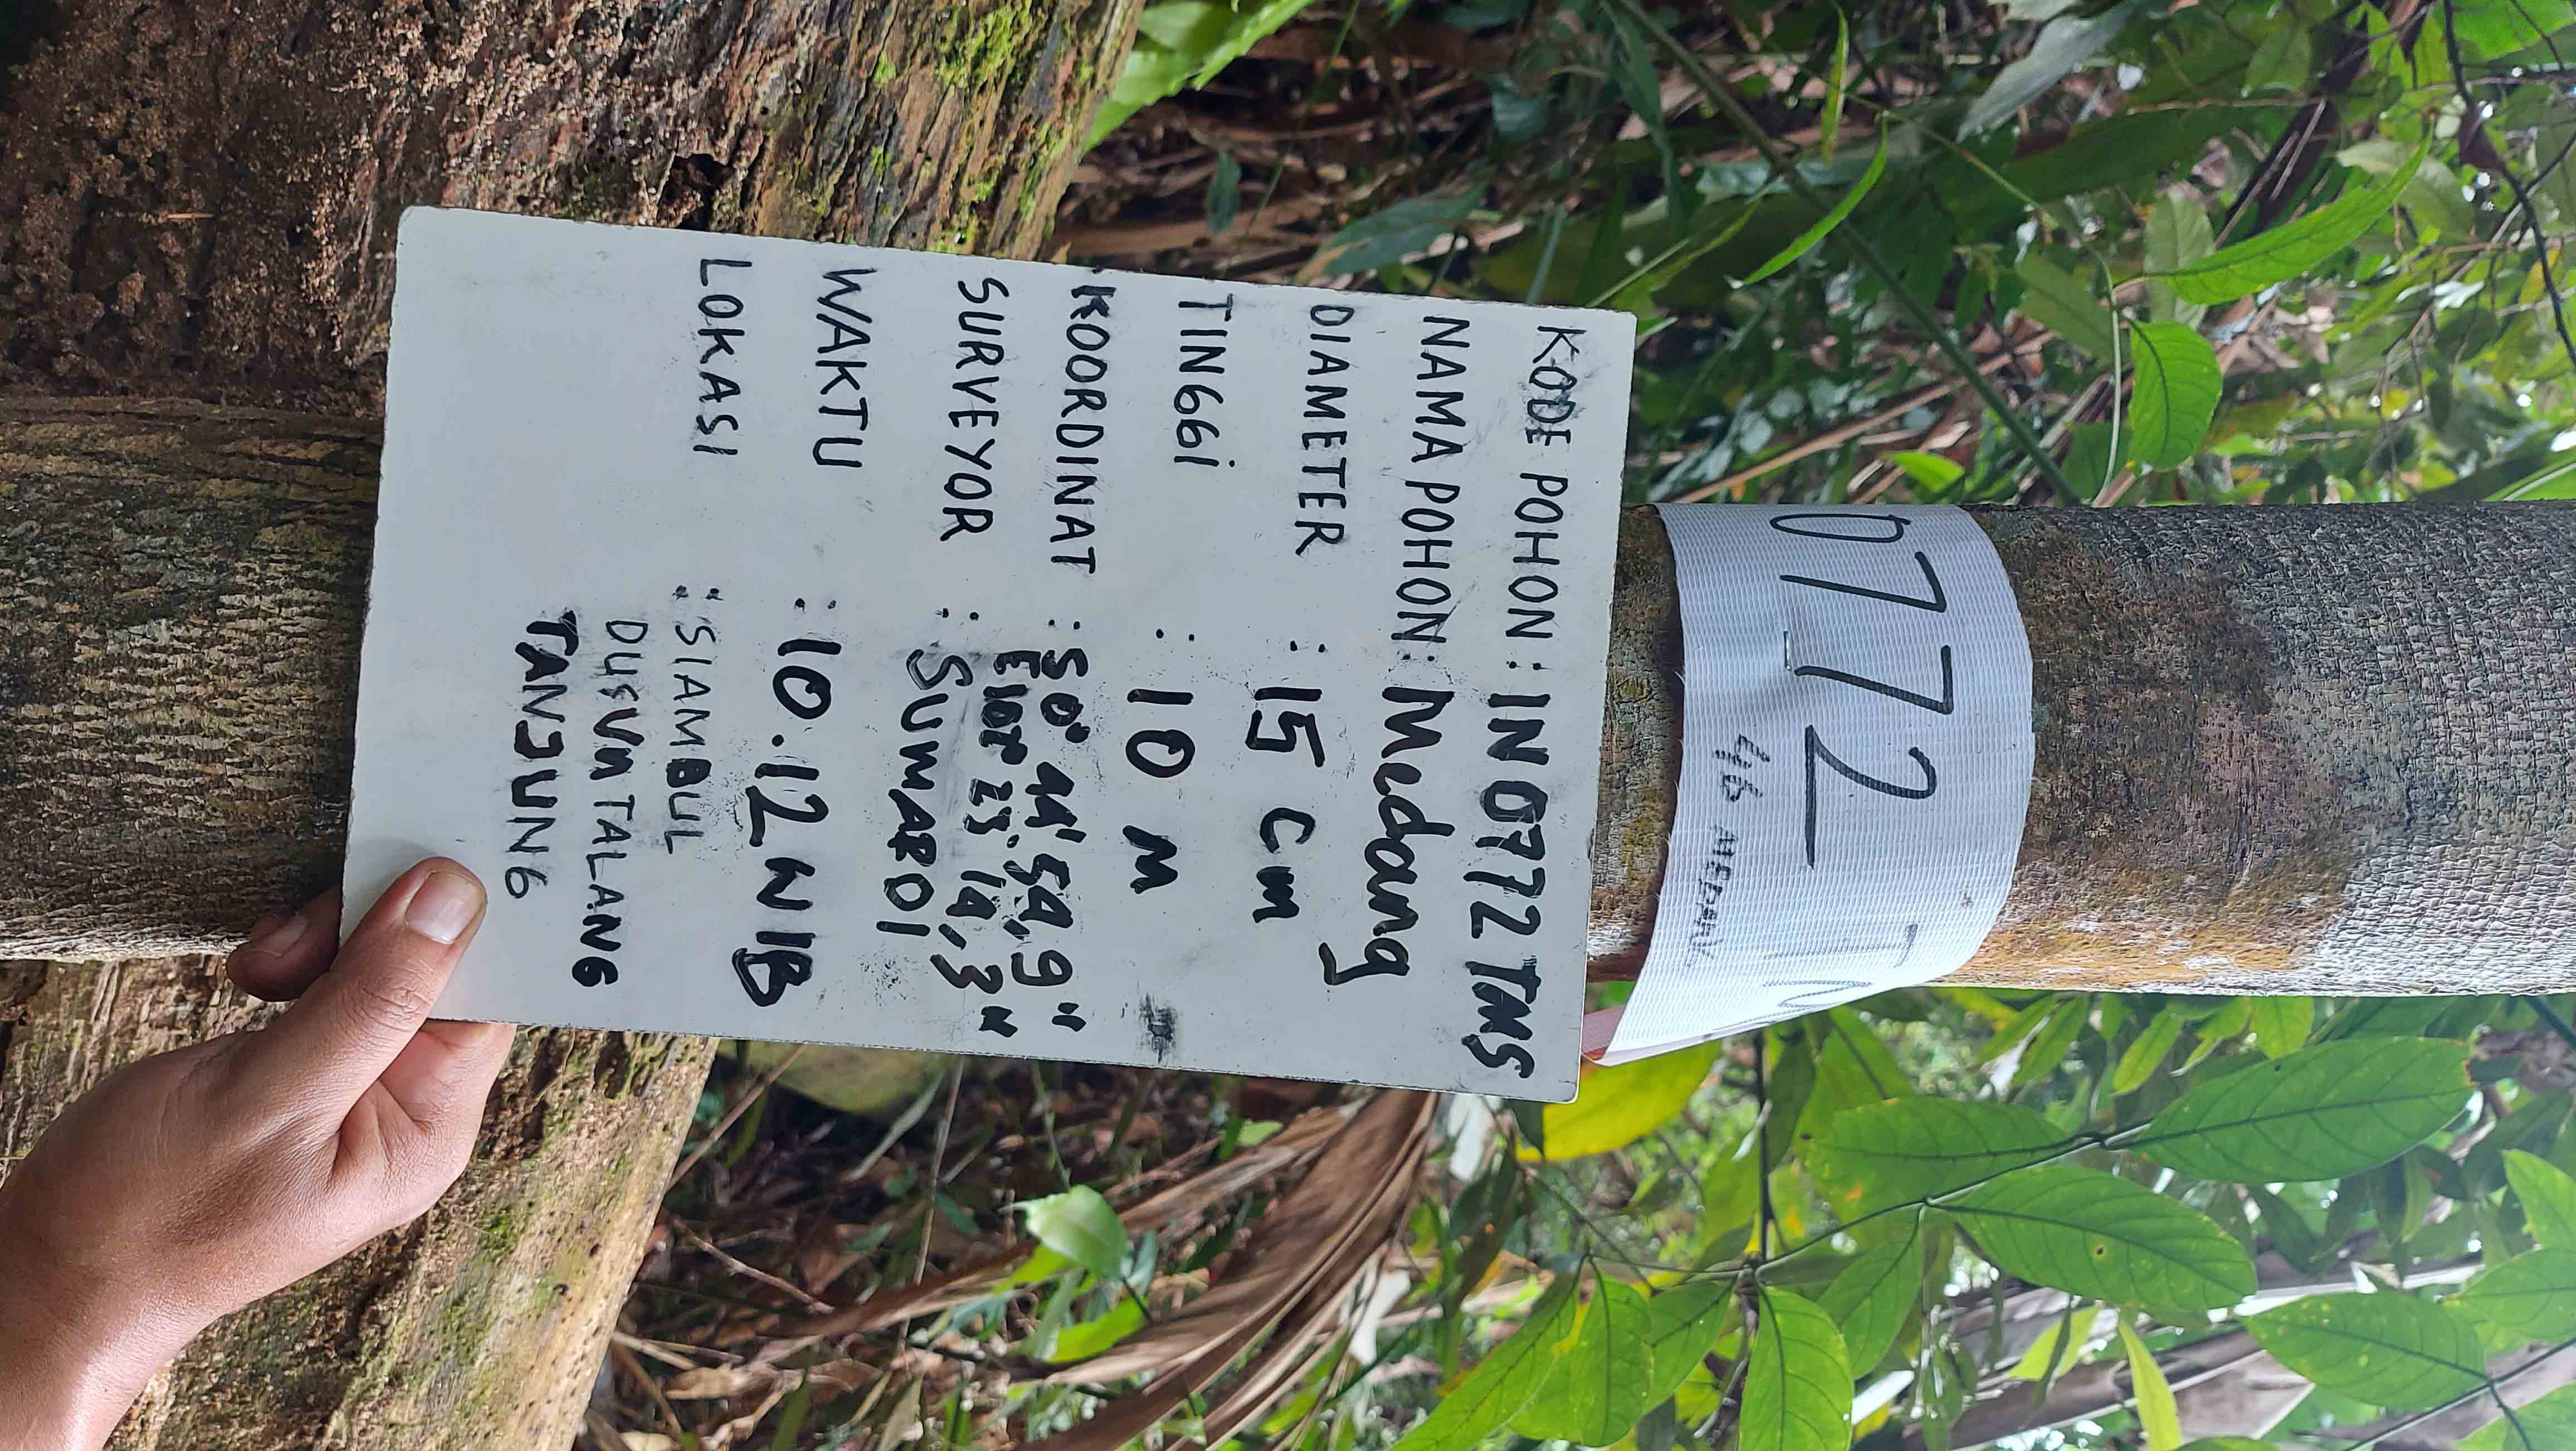 0772 TM
46 MEDANG
KODE POHON : IN 0772 TMS
NAMA POHON : Medang
DIAMETER : 15 Cm
TINGGi : 10 M
KOORDINAT : S 0° 44' 54,9"
E 102° 23' 14,3"
SURVEYOR : SUWARDI
WAKTU : 10.12 WIB
LOKASI : SIAMBUL
DUSUn TALANG
TANJUNG